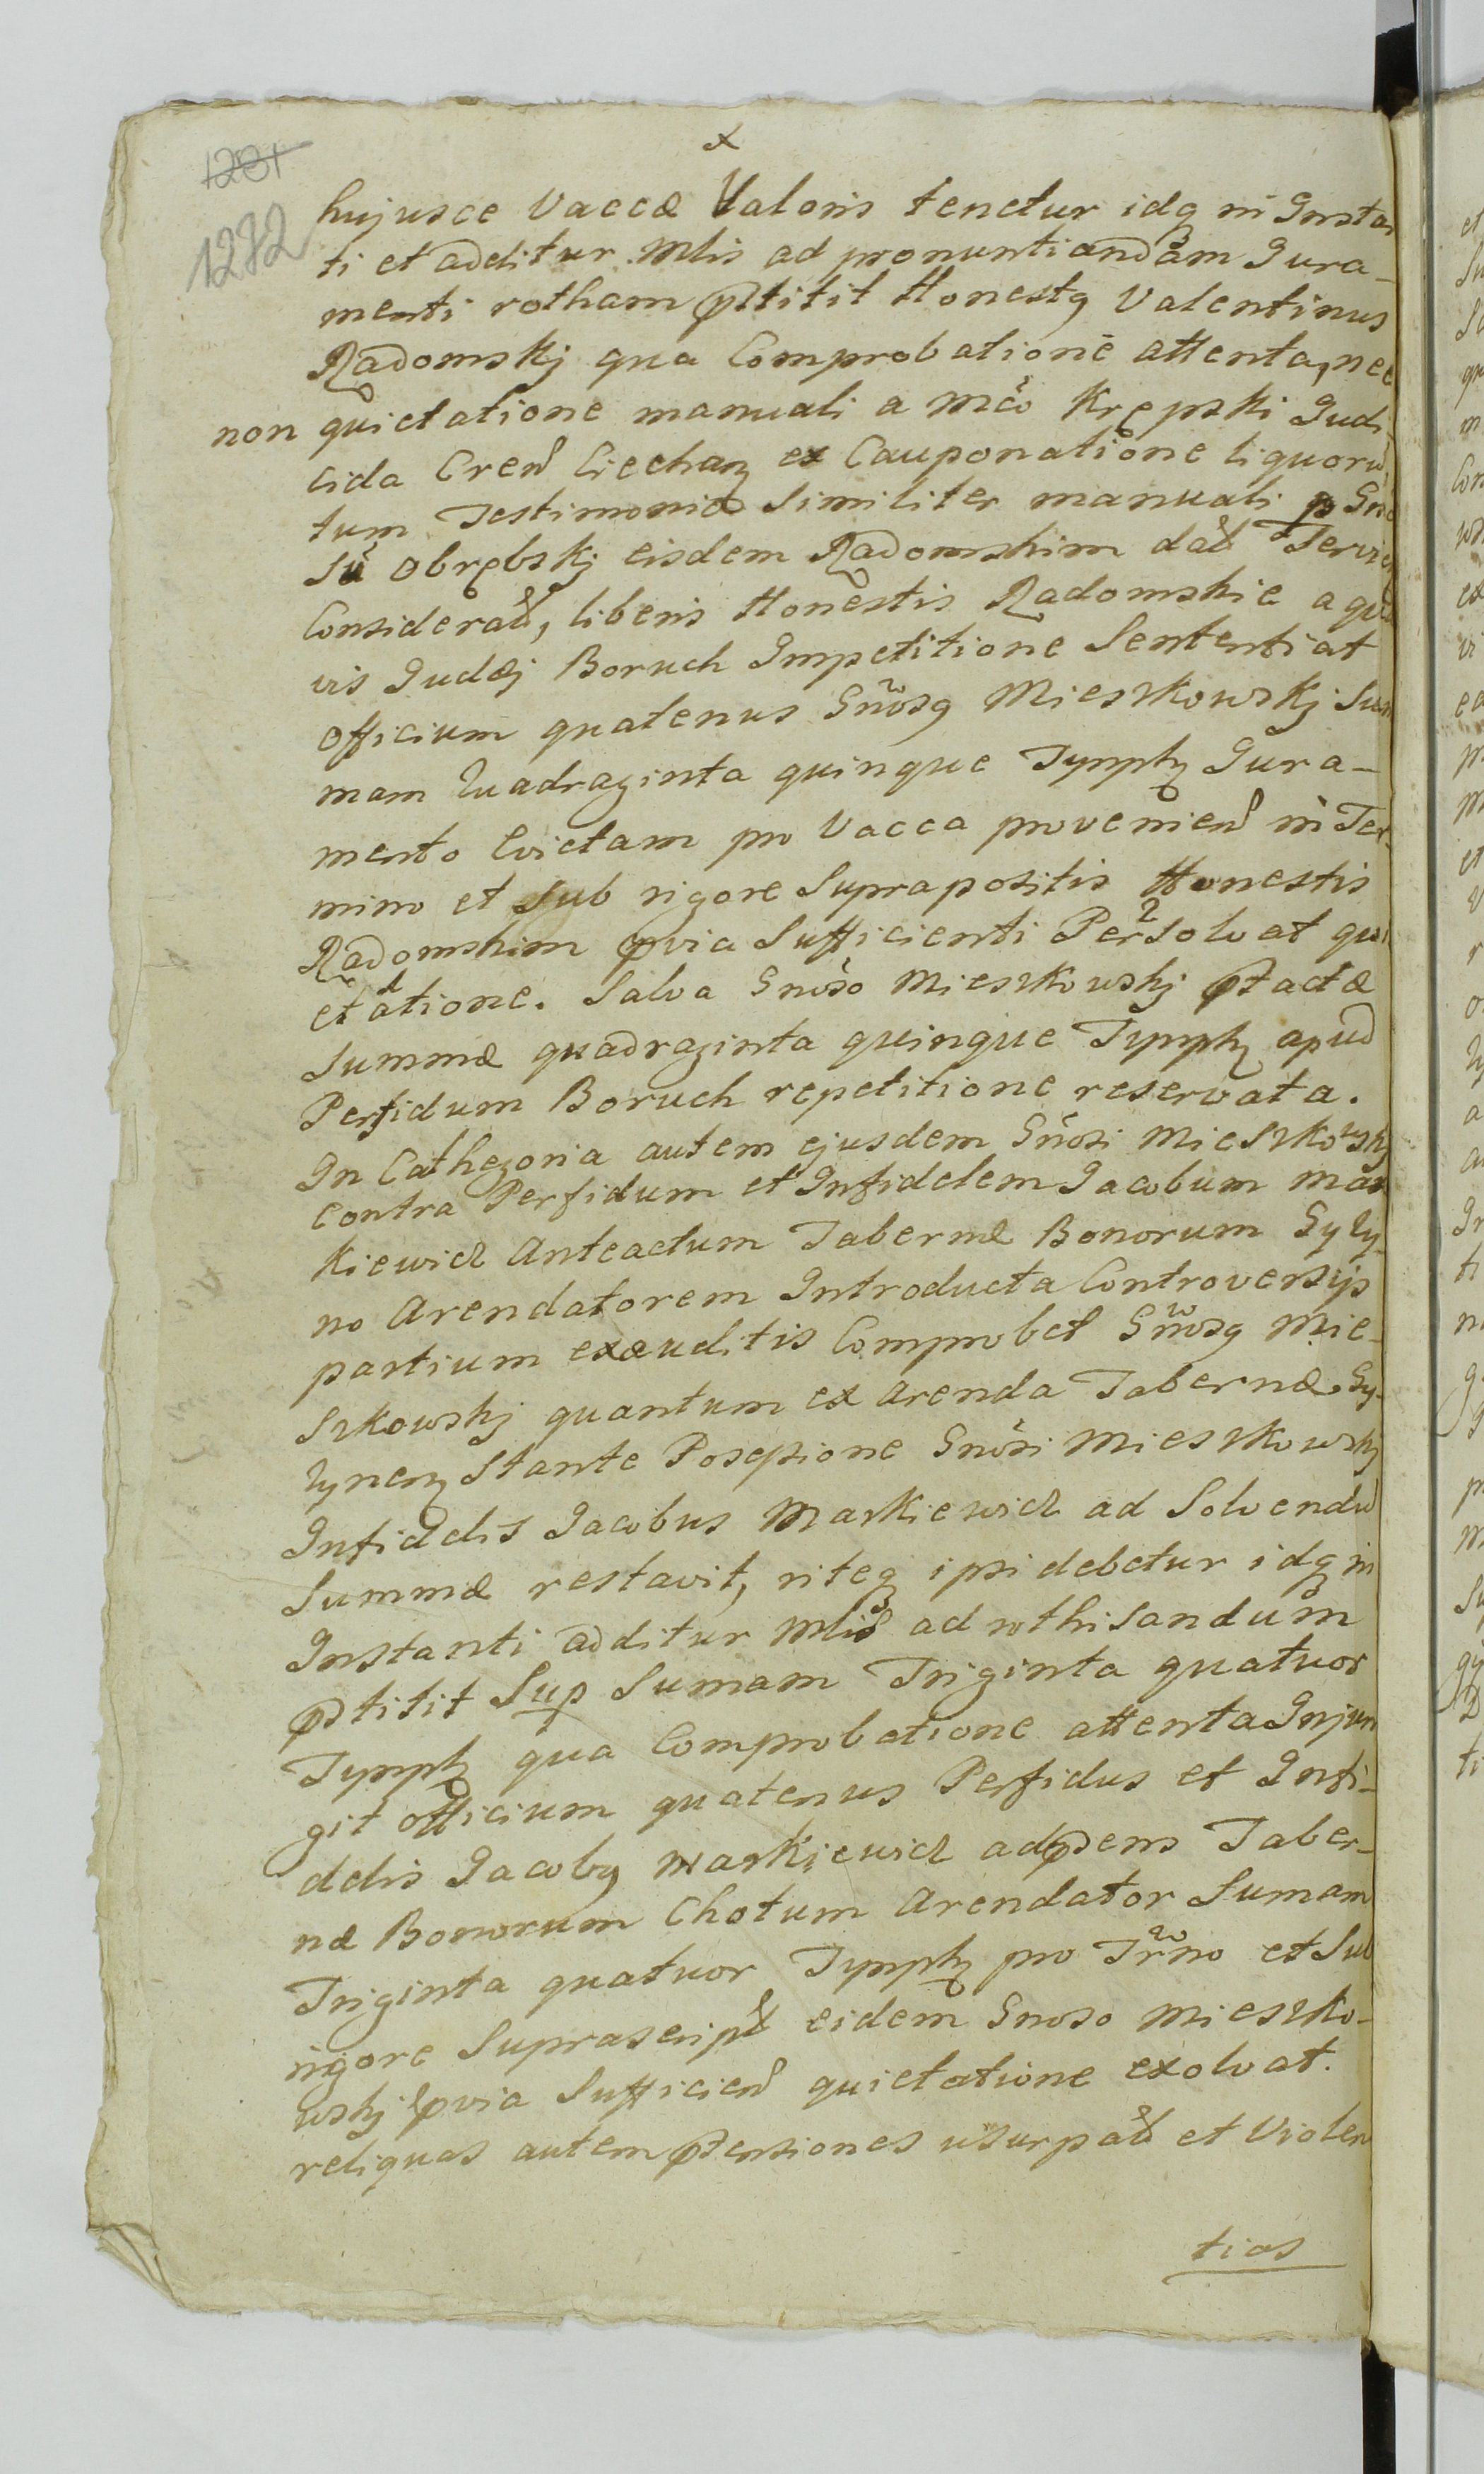 1201
1272
x
hujusce Vaccæ Valoris tenetur idq in Insta
ti et additur Mlis ad pronuntiandam Jura-
menti rotham pstitit Honestq Valentinus
Radomskj qua Comprobatione attenta, nec
non quietatione manuali a Mco Krępski Judi
cida Cren Ciechan ex Cauponatione liquorū,
tum Testimonio Similiter manuali p Gn
Obrębskj eisdem Radomskim dat Servi
Considerat, liberis Honestis Radomskie a q
vis Judæj Boruch Impetitione Sententiat
Officium quatenus Gnosq Mieszkowskj Sum
mam Quadraginta quinque Tymph Jura-
mento Evictam pro Vacca provenien in Ter-
mino et sub rigore Suprapositis Honestis
Radomskim pvia Sufficienti Persolvat qui
etatione. Salva Gnoso Mieszkowskj ptactæ
Summæ quadraginta quinque Tymph apud
Perfidum Boruch repetitione reservata.
In Cathegoria autem ejusdem Gnosi Mieszkowskj
contra Perfidum et Infidelem Jacobum Mar
kiewicz Anteactum Tabernæ Bonorum Gyży-
no Arendatorem Introducta Controversijs
partium exauditis Comprobet Gnosq Mie-
szkowskj quantum ex Arenda Tabernæ Gy-
żynen Stante Posessione Gnosi Mieszkowskj
Infidelis Jacobus Markiewicz ad Solvendū
Summæ restavit, riteq ipsi debetur idq in
Instanti additur Mlis ad rothisandum
pstitit Sup Sumam Triginta quatuor
Tymph qua Comprobatione attenta Injun
git officium quatenus Perfidus et Infi-
delis Jacobq Markiewicz adpsens Taber-
næ Bonorum Chotum Arendator Sumam
Triginta quatuor Tymph pro Trno et Sub
rigore Suprascript eidem Gnoso Mieszko-
wskj pvia Sufficien quietatione exolvat.
reliquas autem ptensiones usurpat et Violen
tias